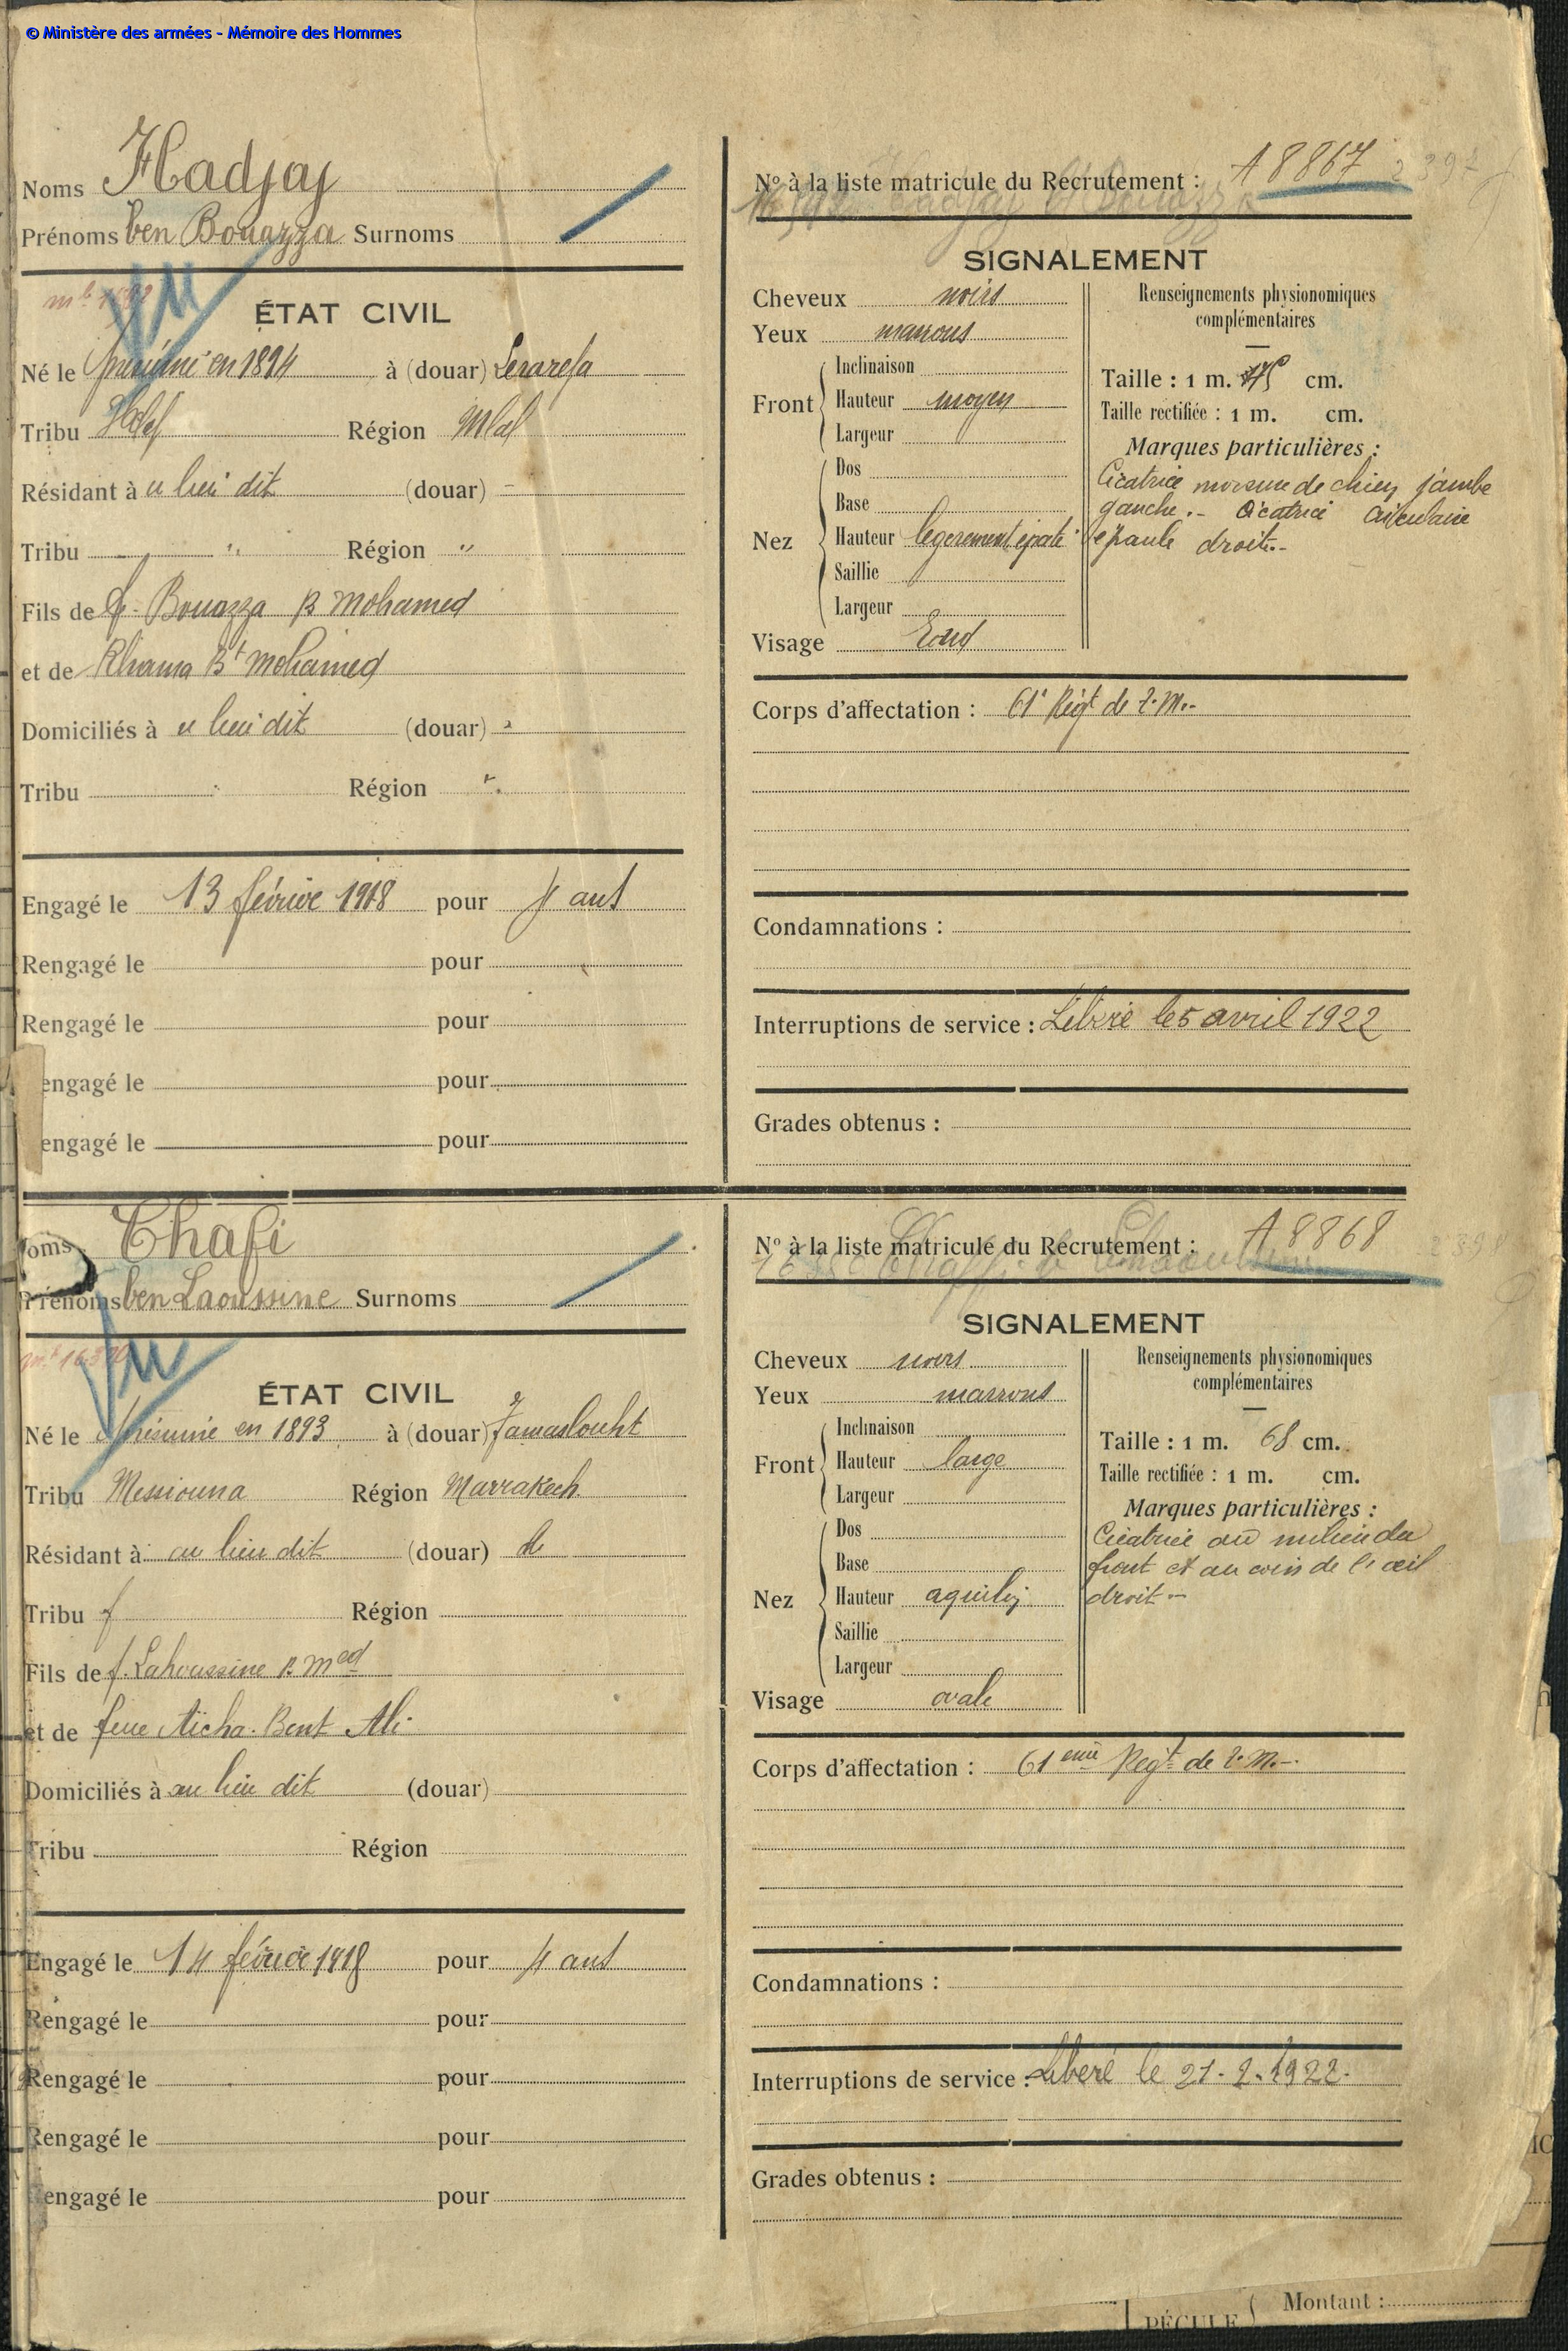 © Ministère des armées - Mémoire des Hommes
Noms Hadjaj
Prénoms ben Bouazza Surnoms
Vu
ÉTAT CIVIL
Né le présumé en 1894 à (douar)
Tribu Région
Résidant à u lieu dit (douar) -
Tribu " Région "
Fils de f. Bouazza B Mohamed
et de Bt Mohamed
Domiciliés à u lieu dit (douar) "
Tribu " Région "
Engagé le 13 février 1918 pour 4 ans
Rengagé le pour
Rengagé le pour
engagé le pour
engagé le pour
N° à la liste matricule du Recrutement : A 8867
SIGNALEMENT
Cheveux noirs
Yeux marrons
Front
Inclinaison
Hauteur moyen
Largeur
Nez
Dos
Base
Hauteur légèrement épaté
Saillie
Largeur
Visage Rond
Renseignements physionomiques
complémentaires
Taille : 1 m. 75 cm.
Taille rectifiée : 1 m. cm.
Marques particulières :
Cicatrice morsure de chien jambe
gauche.- cicatrice circulaire
épaule droite.-
Corps d'affectation : 61e Régt de T.M.-
Condamnations :
Interruptions de service : Libéré le 5 avril 1922
Grades obtenus :
oms Chafi
Prénoms ben Laoussine Surnoms
Vu
ÉTAT CIVIL
Né le présumé en 1893 à (douar) Tamaslouht
Tribu Messiouna Région Marrakech
Résidant à au lieu dit (douar)
Tribu Région
Fils de f. Lahoussine B. Med
et de feue Aicha Bent Ali
Domiciliés à au lieu dit (douar)
Tribu Région
Engagé le 14 février 1918 pour 4 ans
Rengagé le pour
Rengagé le pour
Rengagé le pour
engagé le pour
N° à la liste matricule du Recrutement : A 8868
SIGNALEMENT
Cheveux noirs
Yeux marrons
Front
Inclinaison
Hauteur large
Largeur
Nez
Dos
Base
Hauteur aquilin
Saillie
Largeur
Visage ovale
Renseignements physionomiques
complémentaires
Taille : 1 m. 68 cm.
Taille rectifiée : 1 m. cm.
Marques particulières :
Cicatrice au milieu du
front et au coin de l'œil
droit -
Corps d'affectation : 61eme Régt de T.M.-
Condamnations :
Interruptions de service : Libéré le 21.2.1922.
Grades obtenus :
PÉCULE
Montant :